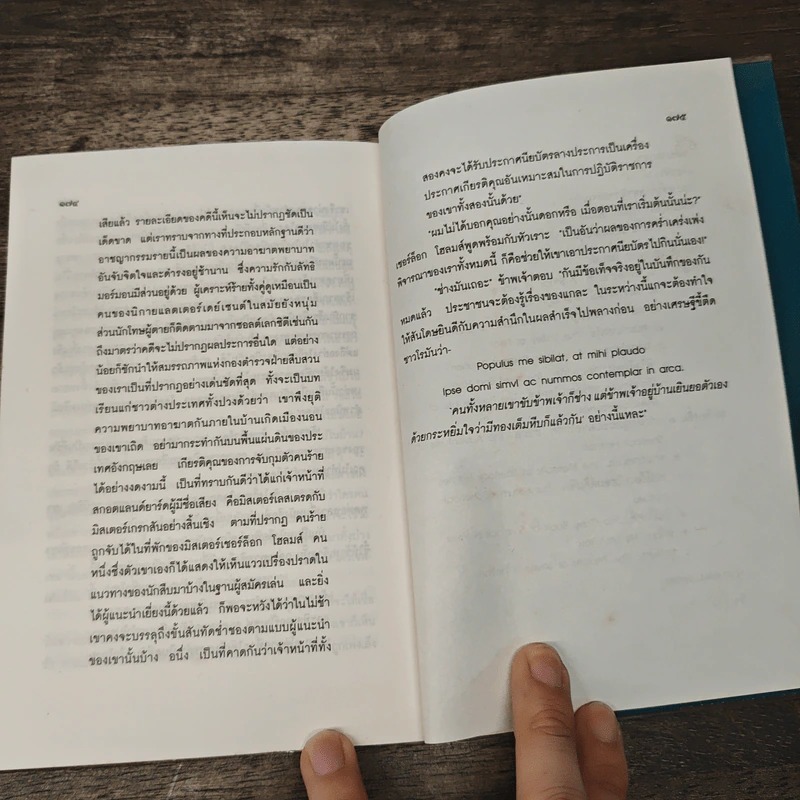 ๑๗๔
เสียแล้ว รายละเอียดของคดีนี้เห็นจะไม่ปรากฏชัดเป็น
เด็ดขาด แต่เราทราบจากทางที่ประกอบหลักฐานดีว่า
อาชญากรรมรายนี้เป็นผลของความอาฆาตพยาบาท
อันจับจิตใจและดำรงอยู่ช้านาน ซึ่งความรักกับลัทธิ
มอร์มอนมีส่วนอยู่ด้วย ผู้เคราะห์ร้ายทั้งคู่ดูเหมือนเป็น
คนของนิกายแลตเตอร์เดย์เซนต์ในสมัยยังหนุ่ม
ส่วนนักโทษผู้ตายก็ติดตามมาจากซอลต์เลกซิตีเช่นกัน
ถึงมาตรว่าคดีจะไม่ปรากฏผลประการอื่นใด แต่อย่าง
น้อยก็ชักนำให้สมรรถภาพแห่งกองตำรวจฝ่ายสืบสวน
ของเราเป็นที่ปรากฏอย่างเด่นชัดที่สุด ทั้งจะเป็นบท
เรียนแก่ชาวต่างประเทศทั้งปวงด้วยว่า เขาพึงยุติ
ความพยาบาทอาฆาตกันภายในบ้านเกิดเมืองนอน
ของเขาเถิด อย่ามากระทำกันบนพื้นแผ่นดินของประ
เทศอังกฤษเลย เกียรติคุณของการจับกุมตัวคนร้าย
ได้อย่างงดงามนี้ เป็นที่ทราบกันดีว่าได้แก่เจ้าหน้าที่
สกอตแลนด์ยาร์ดผู้มีชื่อเสียง คือมิสเตอร์เลสเตรดกับ
มิสเตอร์เกรกสันอย่างสิ้นเชิง ตามที่ปรากฏ คนร้าย
ถูกจับได้ในที่พักของมิสเตอร์เชอร์ล็อก โฮลมส์ คน
หนึ่งซึ่งตัวเขาเองก็ได้แสดงให้เห็นแววเปรื่องปราดใน
แนวทางของนักสืบมาบ้างในฐานผู้สมัครเล่น และยิ่ง
ได้ผู้แนะนำเยี่ยงนี้ด้วยแล้ว ก็พอจะหวังได้ว่าในไม่ช้า
เขาคงจะบรรลุถึงขั้นสันทัดช่ำชองตามแบบผู้แนะนำ
ของเขานั้นบ้าง อนึ่ง เป็นที่คาดกันว่าเจ้าหน้าที่ทั้ง
๑๗๕
สองคงจะได้รับประกาศนียบัตรลางประการเป็นเครื่อง
ประกาศเกียรติคุณอันเหมาะสมในการปฏิบัติราชการ
ของเขาทั้งสองนั้นด้วย"
"ผมไม่ได้บอกคุณอย่างนั้นดอกหรือ เมื่อตอนที่เราเริ่มต้นนั้นน่ะ?"
เชอร์ล็อก โฮลมส์พูดพร้อมกับหัวเราะ "เป็นอันว่าผลของการคร่ำเคร่งเพ่ง
พิจารณาของเราทั้งหมดนี้ ก็คือช่วยให้เขาเอาประกาศนียบัตรไปกินนั่นเอง!"
"ช่างมันเถอะ" ข้าพเจ้าตอบ "กันมีข้อเท็จจริงอยู่ในบันทึกของกัน
หมดแล้ว ประชาชนจะต้องรู้เรื่องของแกละ ในระหว่างนี้แกจะต้องทำใจ
ให้สันโดษยินดีกับความสำนึกในผลสำเร็จไปพลางก่อน อย่างเศรษฐีขี้ตืด
ชาวโรมันว่า-
Populus me sibilat, at mihi plaudo
Ipse domi simvl ac nummos contemplar in arca.
'คนทั้งหลายเขาขับข้าพเจ้าก็ช่าง แต่ข้าพเจ้าอยู่บ้านเยินยอตัวเอง
ด้วยกระหยิ่มใจว่ามีทองเต็มหีบก็แล้วกัน' อย่างนี้แหละ"